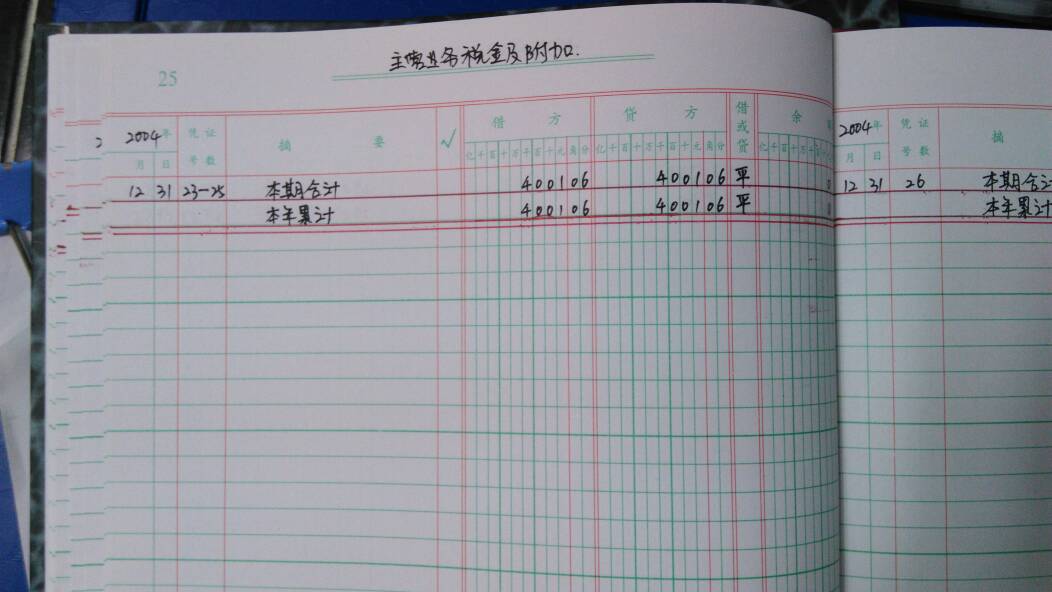 主营业务税金及附加.
25
2004年 凭证 摘要 √ 借方 贷方 借或贷 余
月 日 号数 亿千百十万千百十元角分 亿千百十万千百十元角分 亿千百十万千百
12 31 23-25 本期合计 400106 400106 平
本年累计 400106 400106 平
2004年 凭证 摘
月 日 号数
12 31 26 本期合计
本年累计